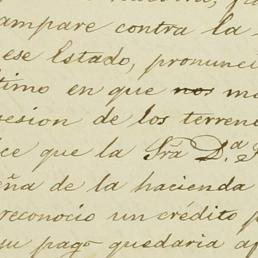 ampare contra la
ese Estado, pronunci
timo en que nos m
esion de los terren
ce que la Sra D.a
eña de la hacienda
reconocio un crédito p
su pago quedaria a